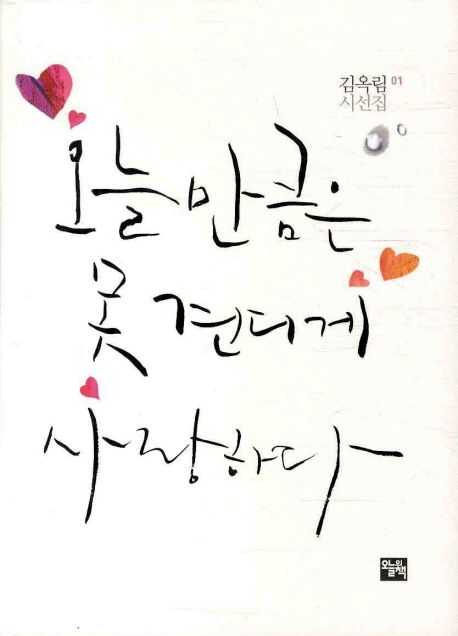 김옥림 01
시선집
오늘만큼은
못 견디게
사랑하다
오늘의책